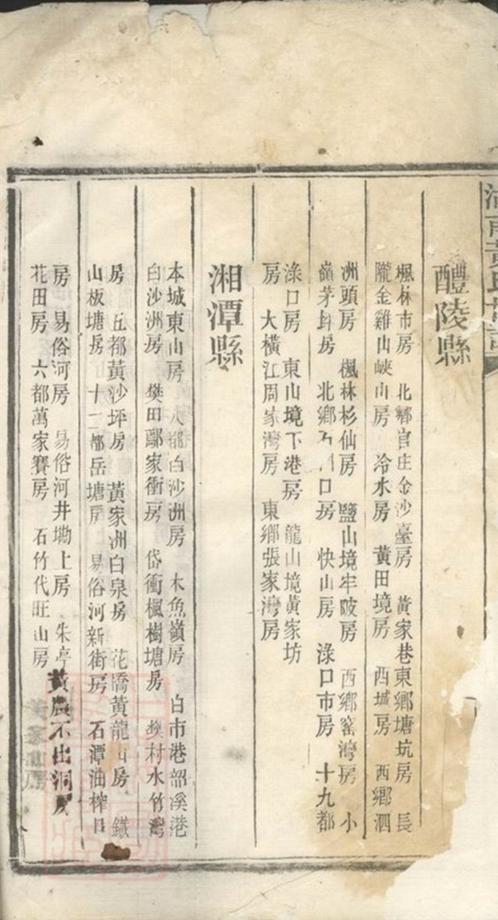 醴陵縣
楓林市房　北鄉官庄金沙臺房　黃家巷東鄉塘坑房　長
隴金雞山峽山房　冷水房　黃田境房　西城房　西鄉泗
洲頭房　楓林杉仙房　鹽山境牢陂房　西鄉窰灣房　小
嶺茅田房　北鄉口房　快山房　淥口市房　十九都
淥口房　東山境下港房　龍山境黃家坊
房　大橫江周家灣房　東鄉張家灣房
湘潭縣
本城東山房　都白沙洲房　木魚嶺房　白市港韶溪港
白沙洲房　樊田鄢家衝房　岱衝楓樹塘房　樊村水竹灣
房　五都黃沙坪房　黃家洲白泉房　花橋黃龍山房　鐵
山板塘房　十二都岳塘房　易俗河新街房　石潭油榨
房　易俗河房　易俗河井塘上房　朱亭黃農不出洞房
花田房　六都萬家賽房　石竹代旺山房